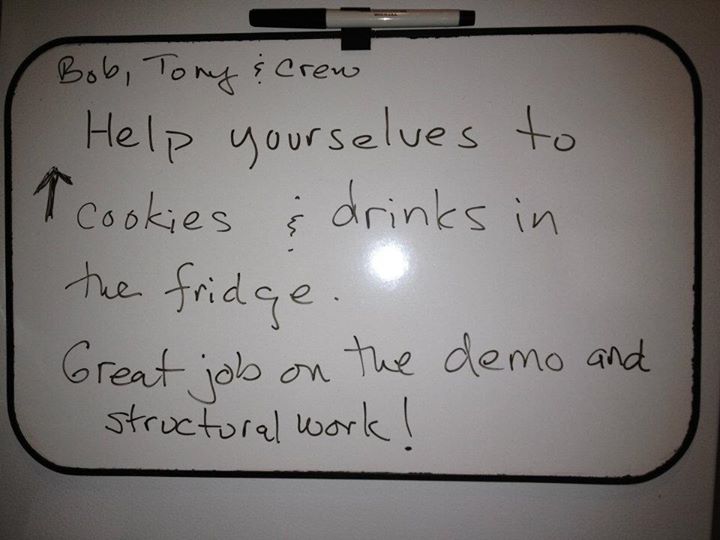 Bob, Tony & Crew
Help yourselves to
↑ cookies & drinks in
the fridge.
Great job on the demo and
structural work!